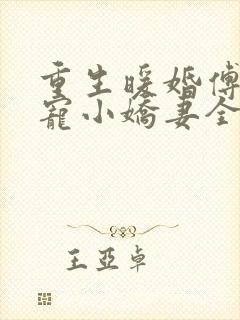 重生暖婚傅
寵小嬌妻全
王亞卓